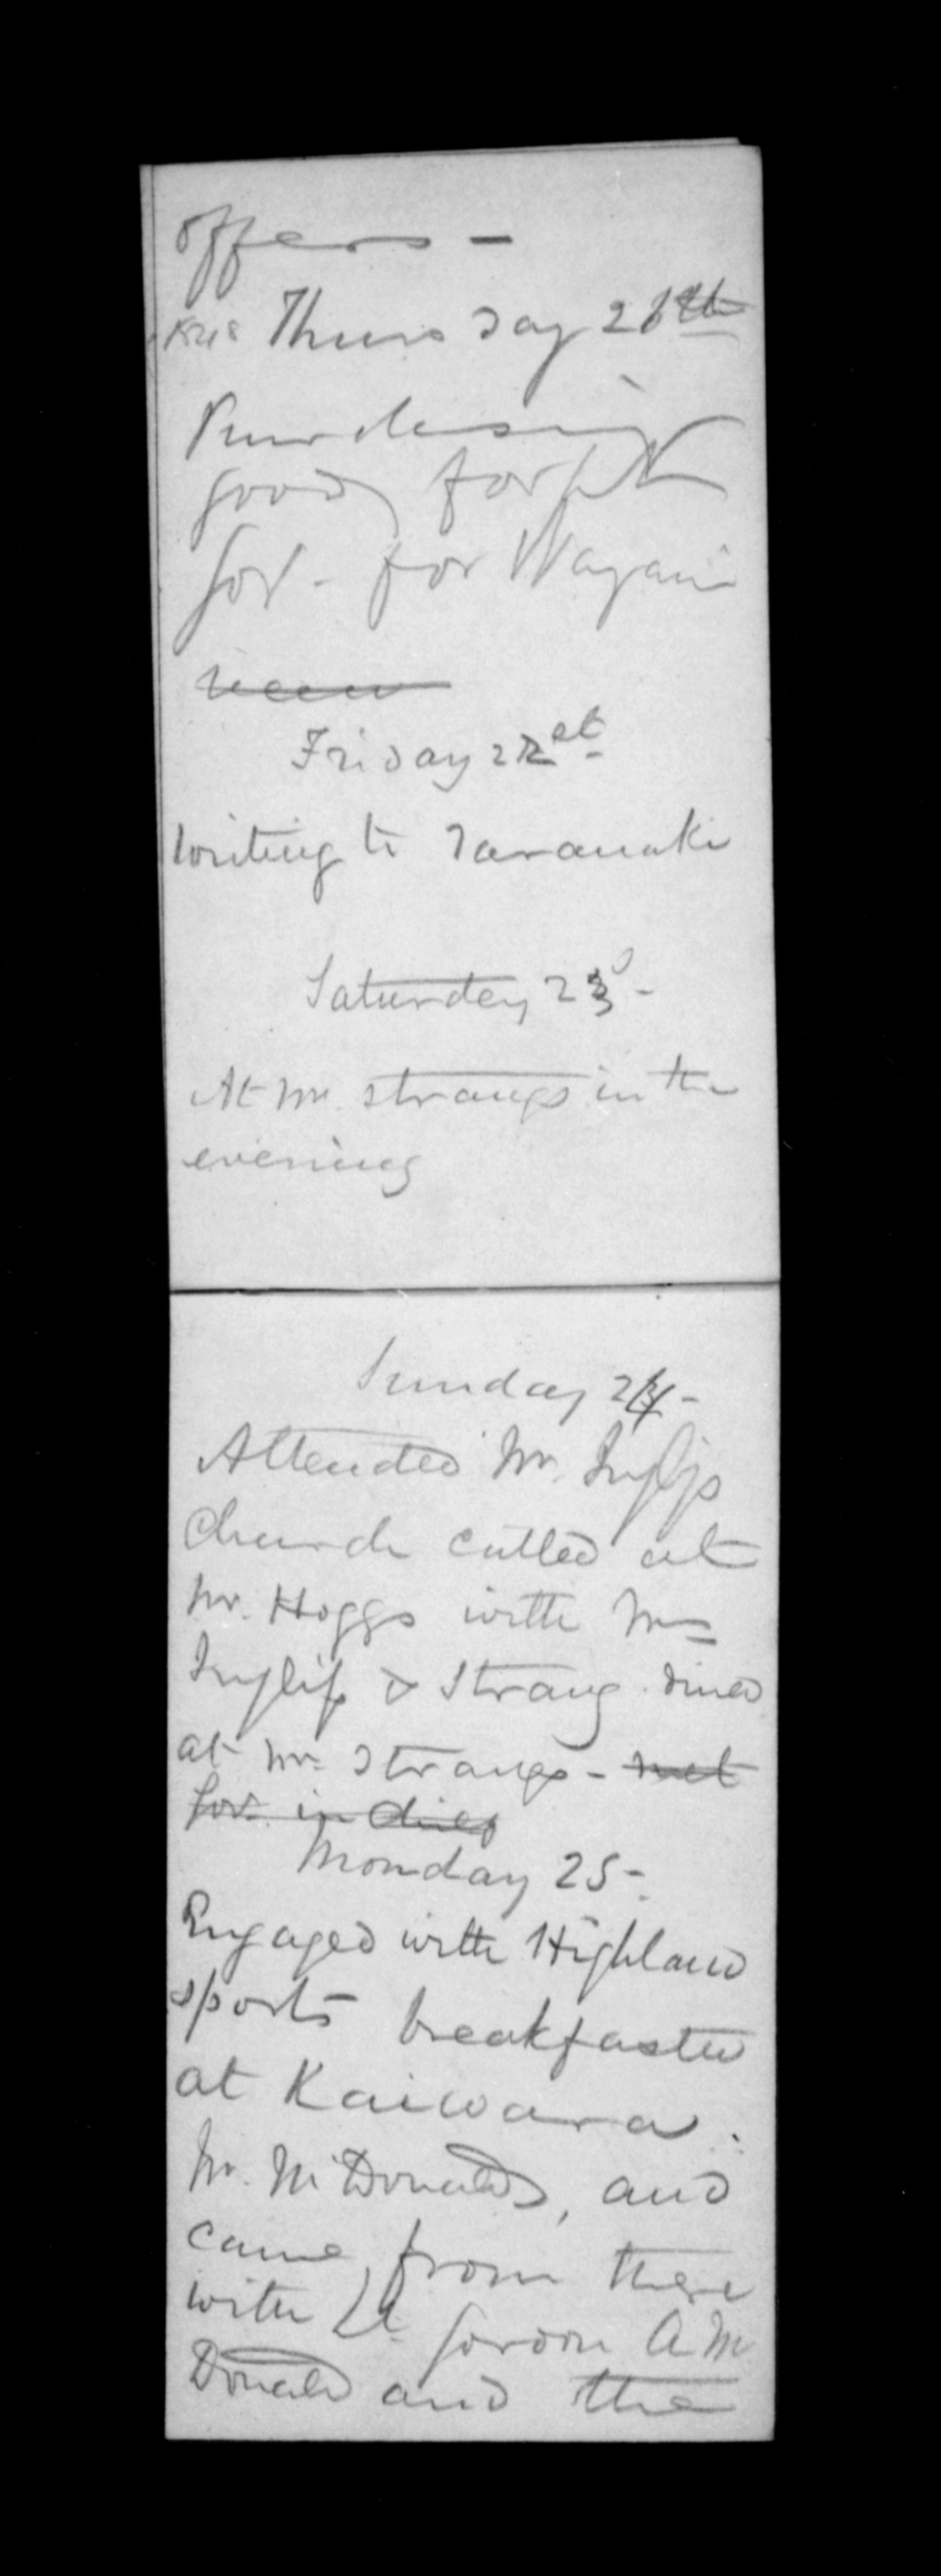 offers -
1848 Thursday 21st
Purchasing
goods for Lt
Gov - for Wayau
Friday 22
writing to Taranaki
Saturday 23 -
At Mr. Strangs in the
evening
Sunday 24 -
Attended Mr. Inglis
Church called at
Mr. Hoggs with Mrs
Inglis & Strang. dined
at Mr Strangs - met
Gov. in
Monday 25 -
Engaged with Highland
sports breakfasted
at Kaiwara.
Mr. McDonalds, and
came from there
with Lt Gordon A Mc
Donald and the